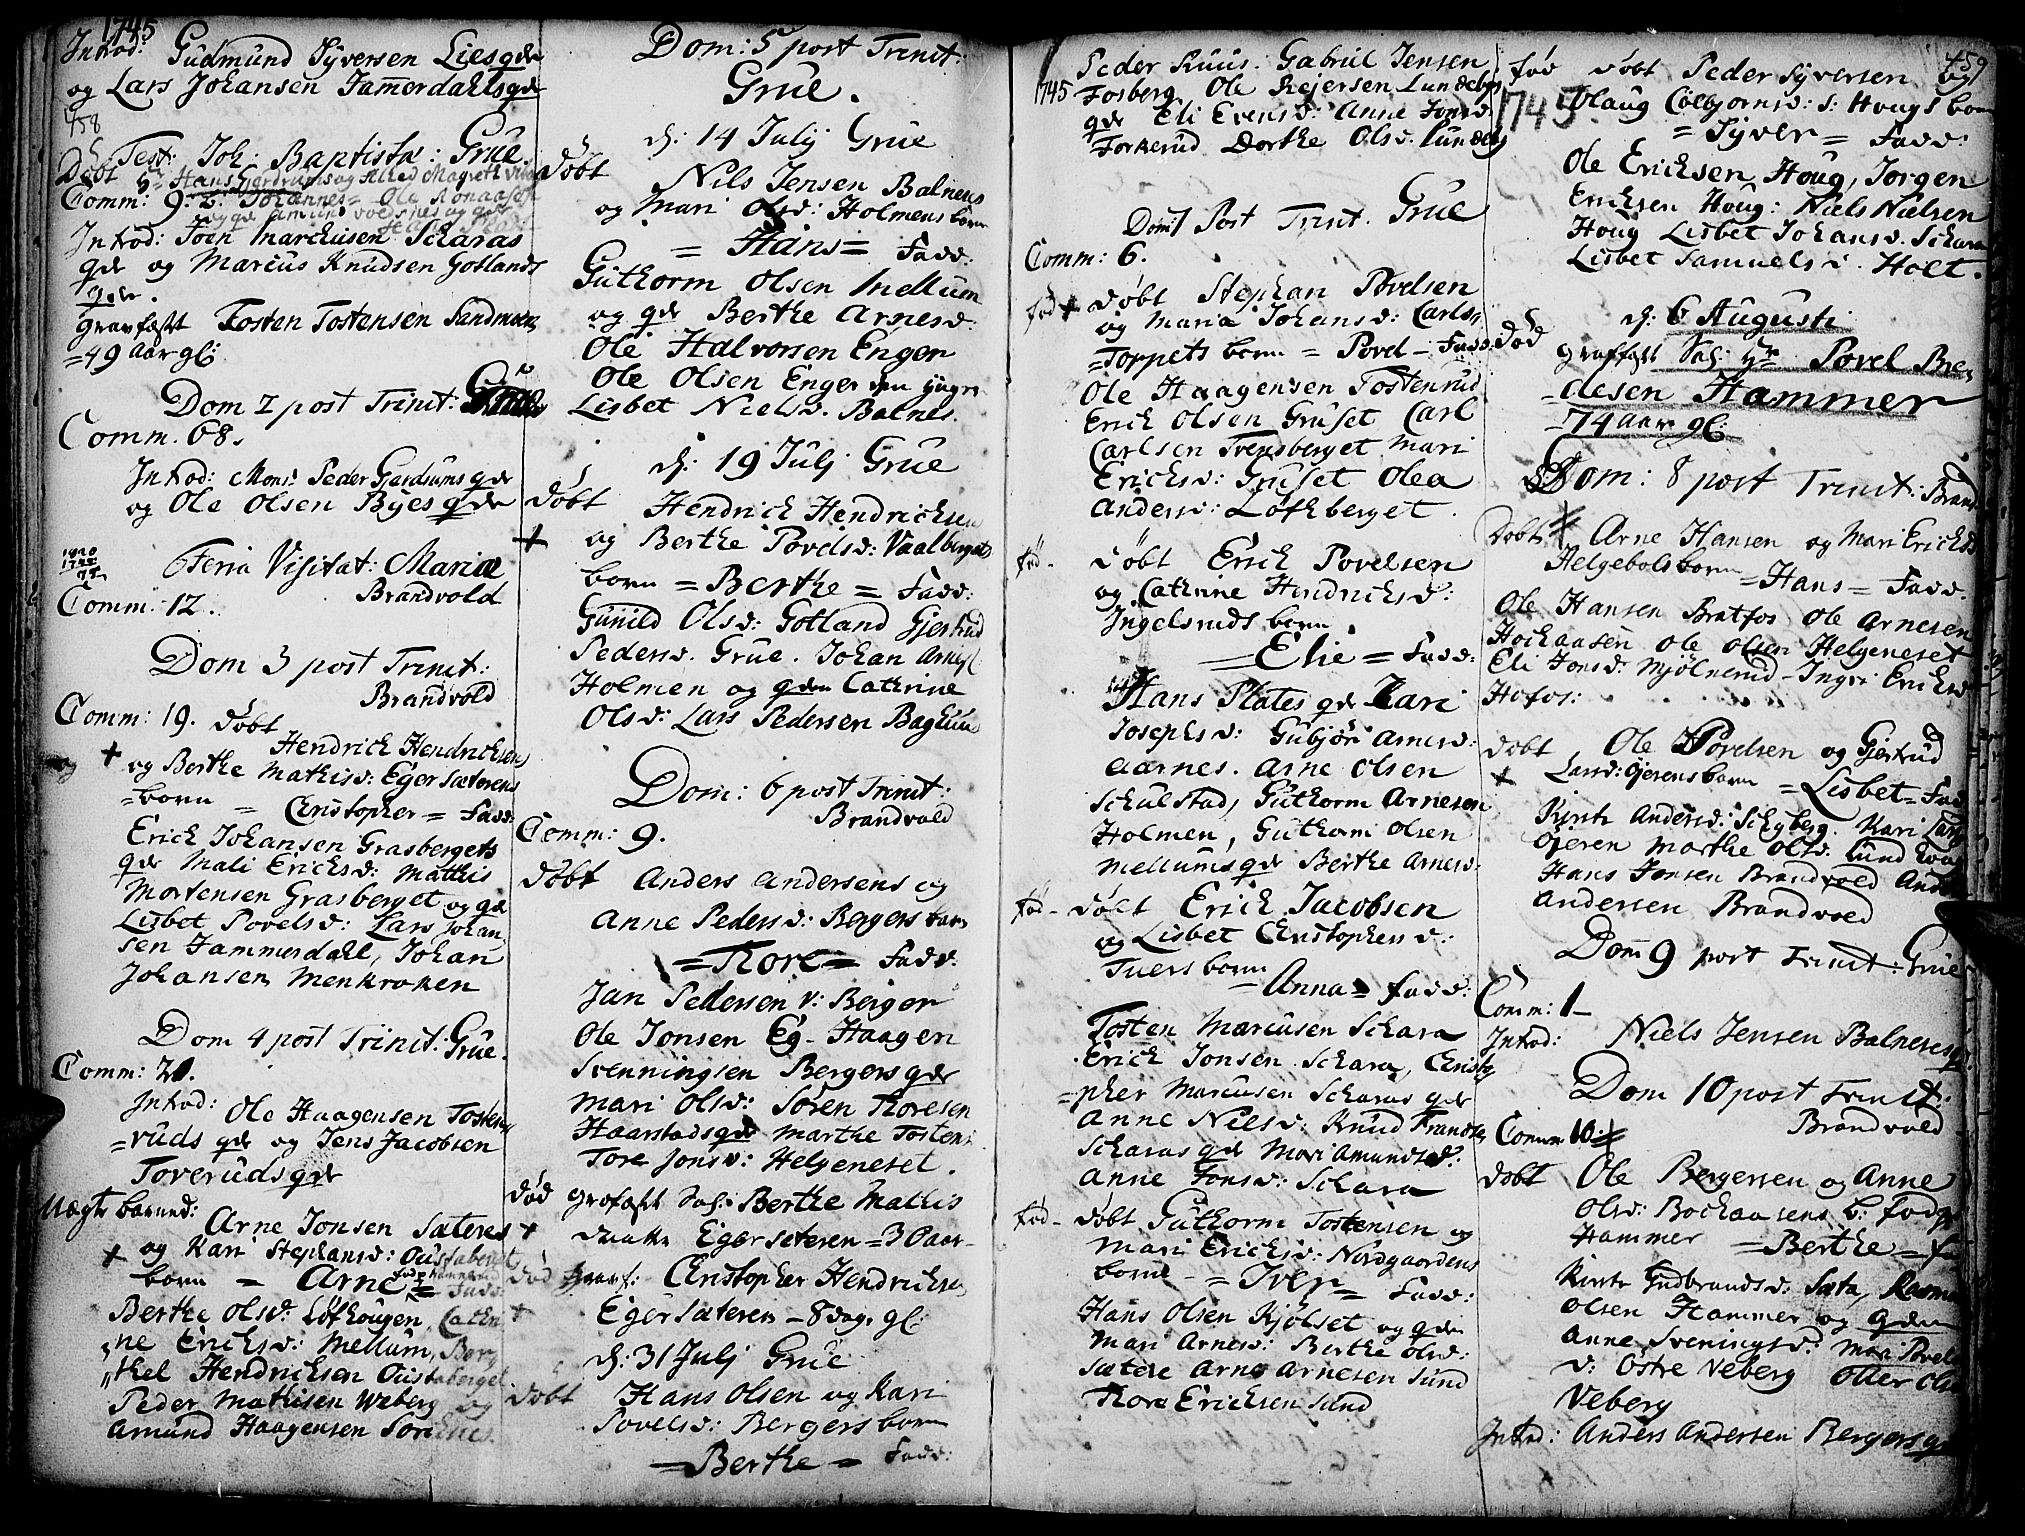 1745
Introd: Gudmund Syversen Liesqde
og Lars Johansen Jammerdahlsqde
458
Fest: Joh: Baptistæ: Grue.
Døbt Hans Gjerdrums og Magreth
Comm: 9. Johannes Ole
Introd: Joen Marchusen Scharas
qde og Marcus Knudsen Gotlands
qde.
gravfæst Tosten Tostensen Sandmoen
=49 aar gl:
Dom 2 post Trinit: Grue
Comm. 68.
Introd: Mons: Peder Gerdrums qde
og Ole Olsen Byes qde
1820
1745
75
Feria Visitat: Mariæ
Brandvold
Comm: 12.
Dom 3 post Trinit:
Brandvold
Comm: 19. døbt
Hendrich Hendrichsen
og Berthe Mathisd: Eger Sæterens
=born = Christopher = Fadd:
Erich Johansen Grasbergets
qde Mali Erichsd: Mathis
Mortensen Grasberget og qde
Lisbet Povelsd: Lars Johan
sen Jammerdahl, Johan
Johansen Menkroken
Dom 4 post Trinit: Grue.
Comm: 21.
Introd: Ole Haagensen Tosten
=ruds qde og Jens Jacobsen
Toverudsqde
Uægte barned:
Arne Jonsen Sæteres
+ og Kari Stephansd: Oustaberget
born = Arne = Fadd:
Berthe Olsd: Løfhougen, Cathri
ne Erichsd: Mellum, Borg
thel Hendrichsen Oustaberget
Peder Mathisen Weberg og
Amund Haagensen Sorknes.
Dom: 5 post Trinit:
Grue.
d: 14 Julij Grue
Døbt Nils Jensen Balnens
og Mari Olsd: Holmens born
= Hans = Fadd:
Guthorm Olsen Mellum
og qde Berthe Arnesd:
Ole Halvorsen Enger
Ole Olsen Enger den yngre
Lisbet Nielsd. Balnes.
d: 19 Julj Grue
døbt Hendrich Hendrichsen
+ og Berthe Povelsd: Vaalbergets
born = Berthe = Fadd:
Gunild Olsd: Gotland Gjertrud
Pedersd. Grue. Johan Arnes
Holmen og qden Cathrine
Olsd: Lars Pedersen Baglun
Dom: 6 post Trinit:
Brandvold
Comm: 9.
døbt Anders Andersens og
Anne Pedersd: Bergers barn
=Thore= Fadd:
Jan Pedersen v: Berger
Ole Jonsen Eg- Haagen
Svenningsen Bergers qde
Mari Olsd: Søren Thoresen
Haarstadsqde Marthe Tostens
Tore Jonsd: Helgeneset.
død grafæst Sal: Berthe Mathis
+ daatter Eger Sæteren = 30 aar-
død Gravf: Christopher Hendrichse
+ Eger Sæteren - 8 dage gl:
d: 31 Julj Grue
døbt Hans Olsen og Kari
Povelsd: Bergers born
=Berthe = Fadd:
1745
Peder Ruus. Gabriel Jensen
Fosberg Ole Rejersen Lundeby
qde Eli Evensd: Anne Jonsd:
Forkerud Dorthe Olsd. Lundeby
Dom 7 Post Trinit. Grue
Comm: 6.
fød + døbt Stephan Povelsen
og Maria Johansd: Carls
=Torpets born = Povel - Fadd:
Ole Haagensen Tostenrud
Erich Olsen Gruset Carl
Carlsen Svensberget Mari
Erichsd: Gruset Olea
Andersd: Løfhberget.
fød- døbt Erich Povelsen
og Cathrine Hendrichsd:
Ingelsruds born
=Elie = Fadd:
Hans Plates qde Kari
Josephsd: Gubjør Arnesd:
Aarnes. Arne Olsen
Schulstad, Guthorm Arnesen
Holmen, Guthorm Olsen
Mellums qde Berthe Arnesd:
fød- døbt Erich Jacobsen
og Lisbet Christophersd:
Tuers born
=Anna= Fadd:
Tosten Marcusen Schara
Erich Jonsen Schara, Christo
=pher Marcusen Scharas qde
Anne Nielsd: Knud Frandsen
Scharas qde Mari Amundsd:
Anne Jonsd: Schara
fød- døbt Guthorm Tostensen og
Mari Erichsd: Nordgaardens
born = Iver = Fadd:
Hans Olsen Kjølset og qden
Mari Arnesd: Berthe Olsd:
Sætere Arne Arnesen Lund
Thore Erichsen Lund
459
fød døbt Peder Syversen og
1745 Olaug Colbjørnsd: S: Hougs born
= Syver = Fadd:
Ole Erichsen Houg, Jorgen
Erichsen Houg: Niels Nielsen
Houg Lisbet Johansd. Schara
Lisbet Samuelsd. Holt.
d: 6 Augusti
død grafæst Sal: Hr Povel Bre
=desen Hammer
=74 aar gl:
Dom: 8 post Trinit: Brand
Døbt Arne Hansen og Mari Erichsd
Helgebols born =Hans= Fadd.
Ole Hansen Bratfos Ole Arnesen
Hochaasen Ole Olsen Helgeneset
Eli Jonsd: Mjølnerud - Ingri Erichsd
Hofos:
døbt Ole Povelsen og Gjertrud
+ Larsd: Gjerens born = Lisbet= Fad
Kirsti Andersd: Schyberg. Kari Lars
Gjeren Marthe Olsd: Lund
Hans Jonsen Brandvold Anders
Andersen Brandvold
Dom 9 post Trinit: Grue
Comm: 1-
Introd: Niels Jensen Balnes qde
Dom 10 post Trinit:
Brandvold
Comm: 10:
døbt Ole Bergersen og Anne
Olsd: Bochaasens b: fadd
Hammer =Berthe= fa
Kirsti Gudbrandsd: Sata, Rasmus
Olsen Hammer og qden
Anne Sveningsd: Mari Povel
d: Østre Veberg Oller Olse
Veberg
Introd: Anders Andersen Bergers qde